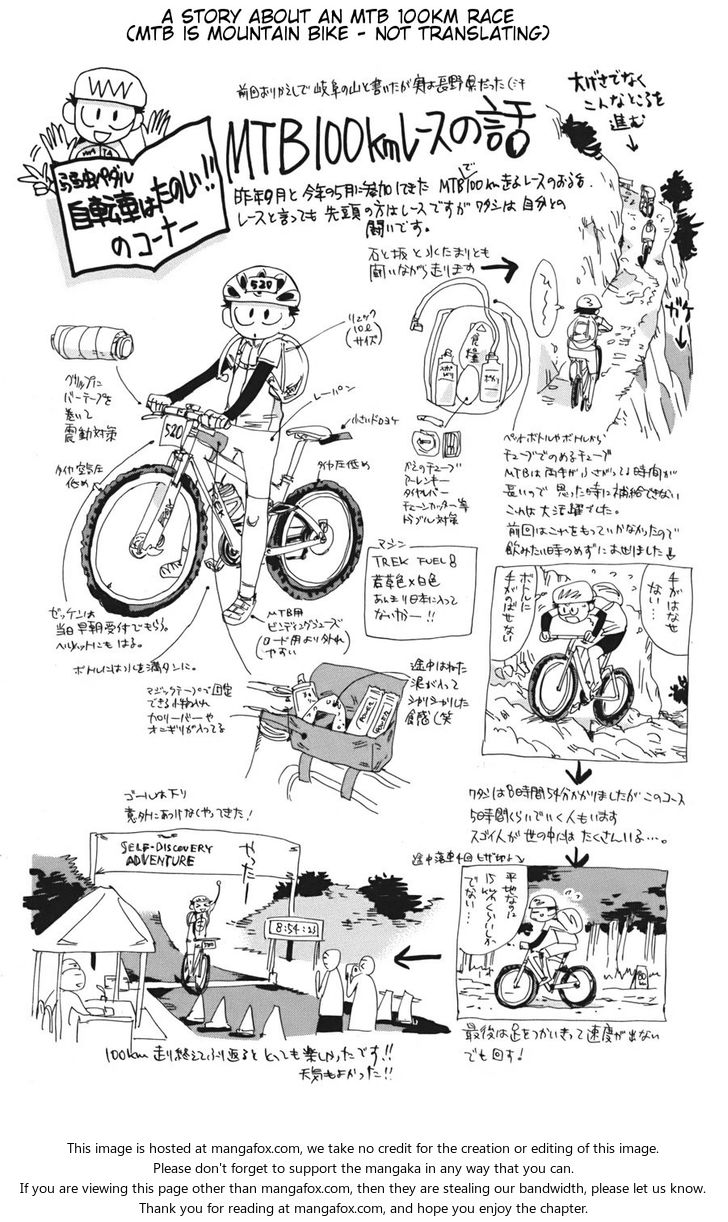 A STORY ABOUT AN MTB 100KM RACE
(MTB IS MOUNTAIN BIKE - NOT TRANSLATING)
MTB100kmレースの話
弱虫ペダル
自転車はたのしい!!
のコーナー
昨年9月と今年の5月に参加してきた MTBで100km走るレースのおはなし。
レースと言っても 先頭の方はレースですがワタシは自分との
闘いです。
大げさでなく
こんなところを
進む
石と坂と水たまりとも
闘いながら走ります
ガケ
520
リュック
(10ℓ
サイズ)
グリップに
バーテープを
巻いて
震動対策
レーパン
小さいドロヨケ
520
タイヤ空気圧
低め
タイヤ圧低め
食糧
かえのチューブ
アーレンキー
タイヤレバー
チェーンカッター等
トラブル対策
ペットボトルやボトルから
チューブでのめるチューブ
MTBは両手がふさがってる時間が
長いので 思った時に補給できない
これは大活躍でした。
前回はこれをもっていかなかったので
マシン
TREK FUEL 8
若草色×白色
あんまり日本に入って
ないかも−!!
手がはなせ
ない…
ボトルに
手がのばせない
ゼッケンは
当日早朝受付でもらう。
ヘルメットにも はる。
MTB用
ビンディングシューズ
(ロード用より外れ
やすい)
ボトルには水を満タンに。
マジックテープで固定
できる小物入れ
カロリーバーや
オニギリが入ってる
途中はねた
泥が入って
ジャリジャリした
食感(笑
ワタシは8時間54分かかりましたが このコース
5時間くらいでいく人もいます
スゴイ人が世の中には たくさんいる…。
ゴールは下り
意外にあっけなくやってきた!
SELF-DISCOVERY
ADVENTURE
やったー
8:54:23
平地なのに
15km/hくらいしか
でない…
最後は足をつかいきって速度が出ない
でも回す!
100km走り終えてふり返ると とっても楽しかったです!!
天気もよかった!!
This image is hosted at mangafox.com, we take no credit for the creation or editing of this image.
Please don't forget to support the mangaka in any way that you can.
If you are viewing this page other than mangafox.com, then they are stealing our bandwidth, please let us know.
Thank you for reading at mangafox.com, and hope you enjoy the chapter.